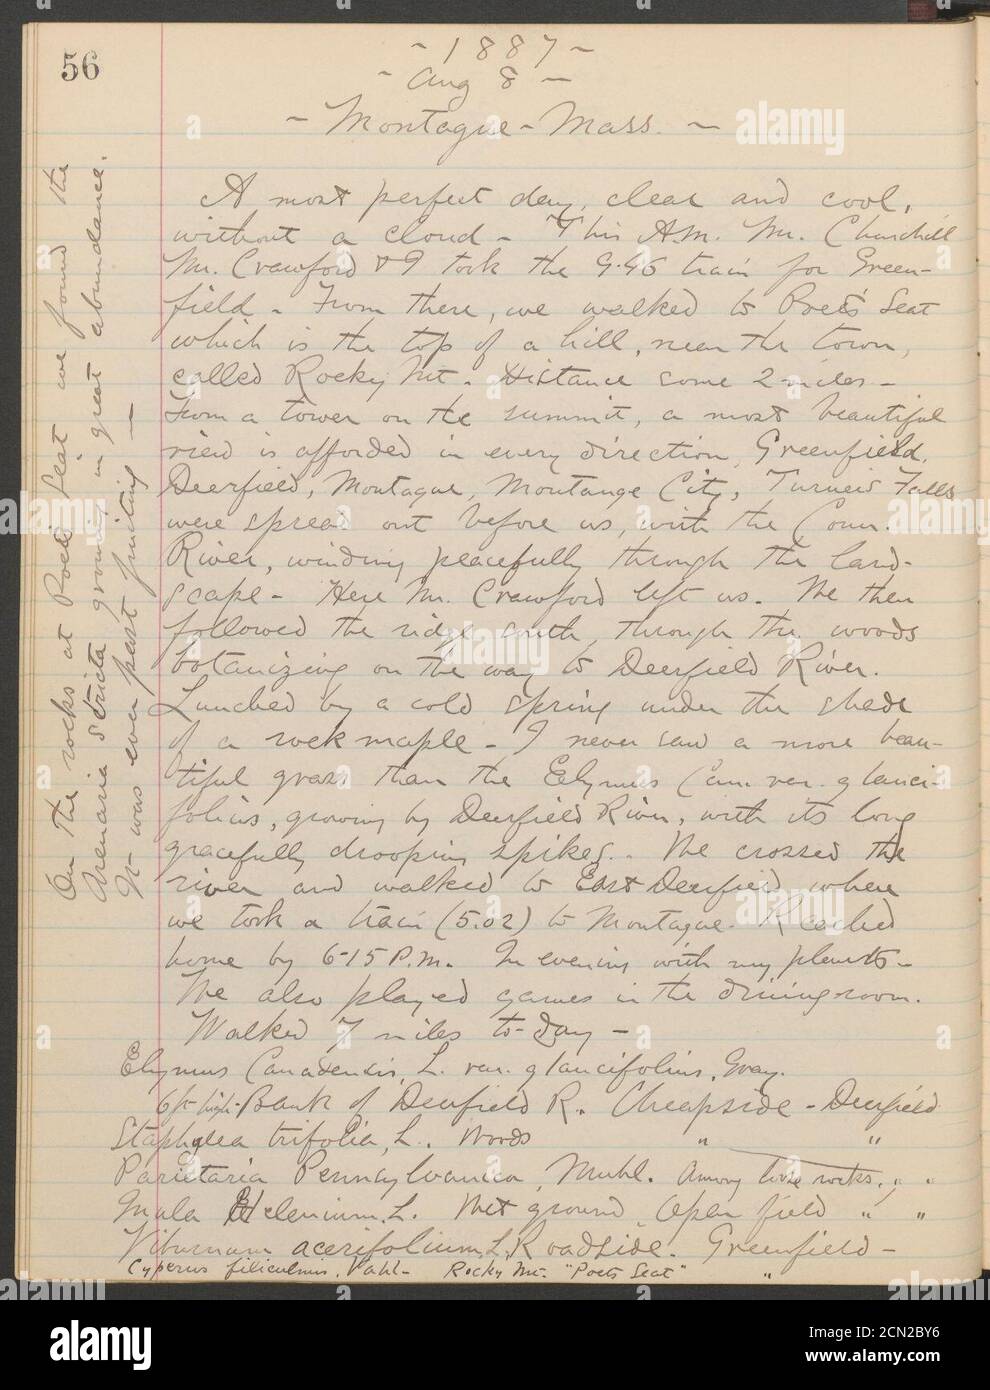 56
- 1887 -
- Aug 8 -
- Montague - Mass. -
A most perfect day, clear and cool,
without a cloud - This A.M. Mr. Churchill
Mr. Crawford & I took the 9.46 train for Green-
field - From there, we walked to Poets' Seat
which is the top of a hill, near the town,
called Rocky Mt. Distance some 2 miles -
From a tower on the summit, a most beautiful
view is afforded in every direction, Greenfield,
Deerfield, Montague, Montange City, Turners Falls
were spread out before us, with the Conn.
River, winding peacefully through the land-
scape - Here Mr. Crawford left us. We then
followed the ridge south, through the woods
botanizing on the way to Deerfield River.
Lunched by a cold spring under the shade
of a rock maple - I never saw a more beau-
tiful grass than the Elymus Can. var. glauci-
folius, growing by Deerfield River, with its long
gracefully drooping spikes. We crossed the
river and walked to East Deerfield where
we took a train (5.02) to Montague. Reached
home by 6-15 P.M. In evening with my plants -
We also played games in the dining-room.
Walked 7 miles to-day -
Elymus Canadensis, L. var. glaucifolius, Gray.
6 ft high - Bank of Deerfield R. Cheapside - Deerfield
Staphylea trifolia, L. Woods " "
Parietaria Pennsylvanica, Muhl. Among loose rocks, " "
Inula Helenium, L. Wet ground Open field " "
Viburnum acerifolium, L. Roadside. Greenfield -
Cyperus filiculmis, Vahl - Rocky Mt. "Poets Seat" "
On the rocks at Poets' Seat we found the
Arenaria stricta growing in great abundance.
It was even past fruiting -
alamy
Image ID: 2CN2BY6
www.alamy.com